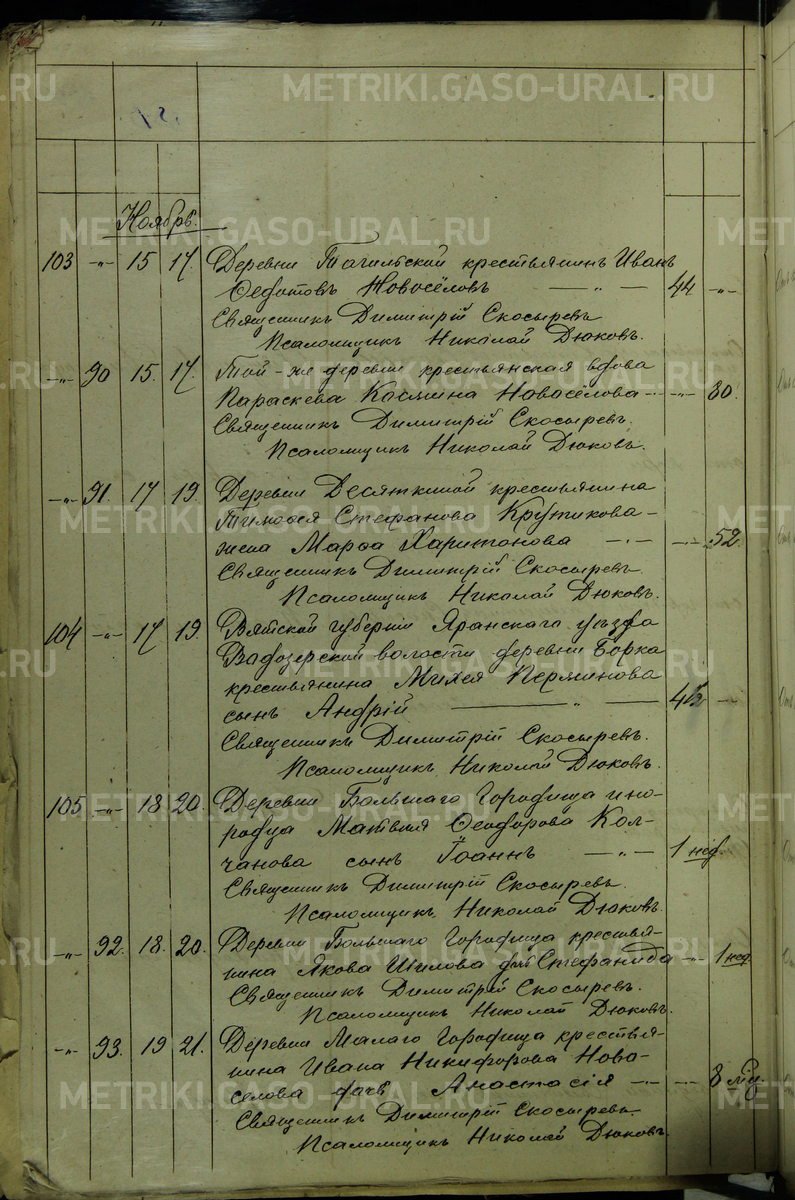 METRIKI.GASO-URAL.RU
Ноябрь.
103 -"- 15 17. Деревни Тагильской крестьянинъ Иванъ
Федотовъ Новосёловъ — " — 44 -"-
Священникъ Димитрій Скосыревъ
Псаломщикъ Николай Дюковъ.
-"- 90 15. 17. Той-же деревни крестьянская вдова
Параскева Космина Новосёлова -"- 80.
Священникъ Димитрій Скосыревъ.
Псаломщикъ Николай Дюковъ.
-"- 91. 17 19. Деревни Десяткиной крестьянина
Тимофея Стефанова Крутикова -
жена Марѳа Харитонова — " — -"- 52.
Священникъ Димитрій Скосыревъ.
Псаломщикъ Николай Дюковъ.
104 -"- 17 19. Вятской губерніи Яранскаго уѣзда
Вадозерской волости деревни Борка
крестьянина Михея Перминова
сынъ Андрій — " —
Священникъ Димитрій Скосыревъ.
Псаломщикъ Николай Дюковъ.
105 -"- 18 20. Деревни Большаго Городища ино-
родца Матвѣя Ѳеодорова Кол-
чанова сынъ Іоаннъ — " — 1 нед.
Священникъ Димитрій Скосыревъ.
Псаломщикъ Николай Дюковъ.
-"- 92. 18. 20. Деревни Большаго Городища крестья-
нина Якова Шилова дочь Стефанида -"- 1 нед.
Священникъ Димитрій Скосыревъ.
Псаломщикъ Николай Дюковъ.
-"- 93. 19 21. Деревни Малаго Городища крестья-
нина Ивана Никифорова Ново-
селова дочь Анастасія -"- -"- 8 мѣц.
Священникъ Димитрій Скосыревъ
Псаломщикъ Николай Дюковъ.